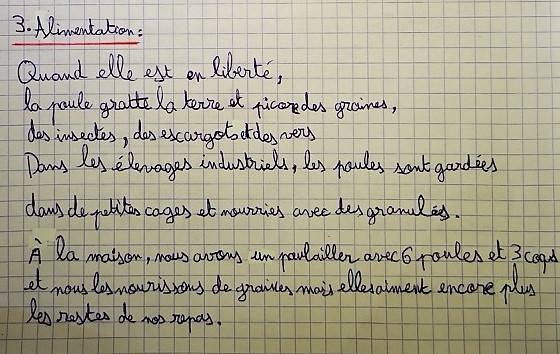 3. Alimentation:
Quand elle est en liberté,
la poule gratte la terre et picore des graines,
des insectes, des escargots et des vers
Dans les élevages industriels, les poules sont gardées
dans de petites cages et nourries avec des granulés.
À la maison, nous avons un poulailler avec 6 poules et 3 coqs
et nous les nourissons de graines mais elles aiment encore plus
les restes de nos repas.